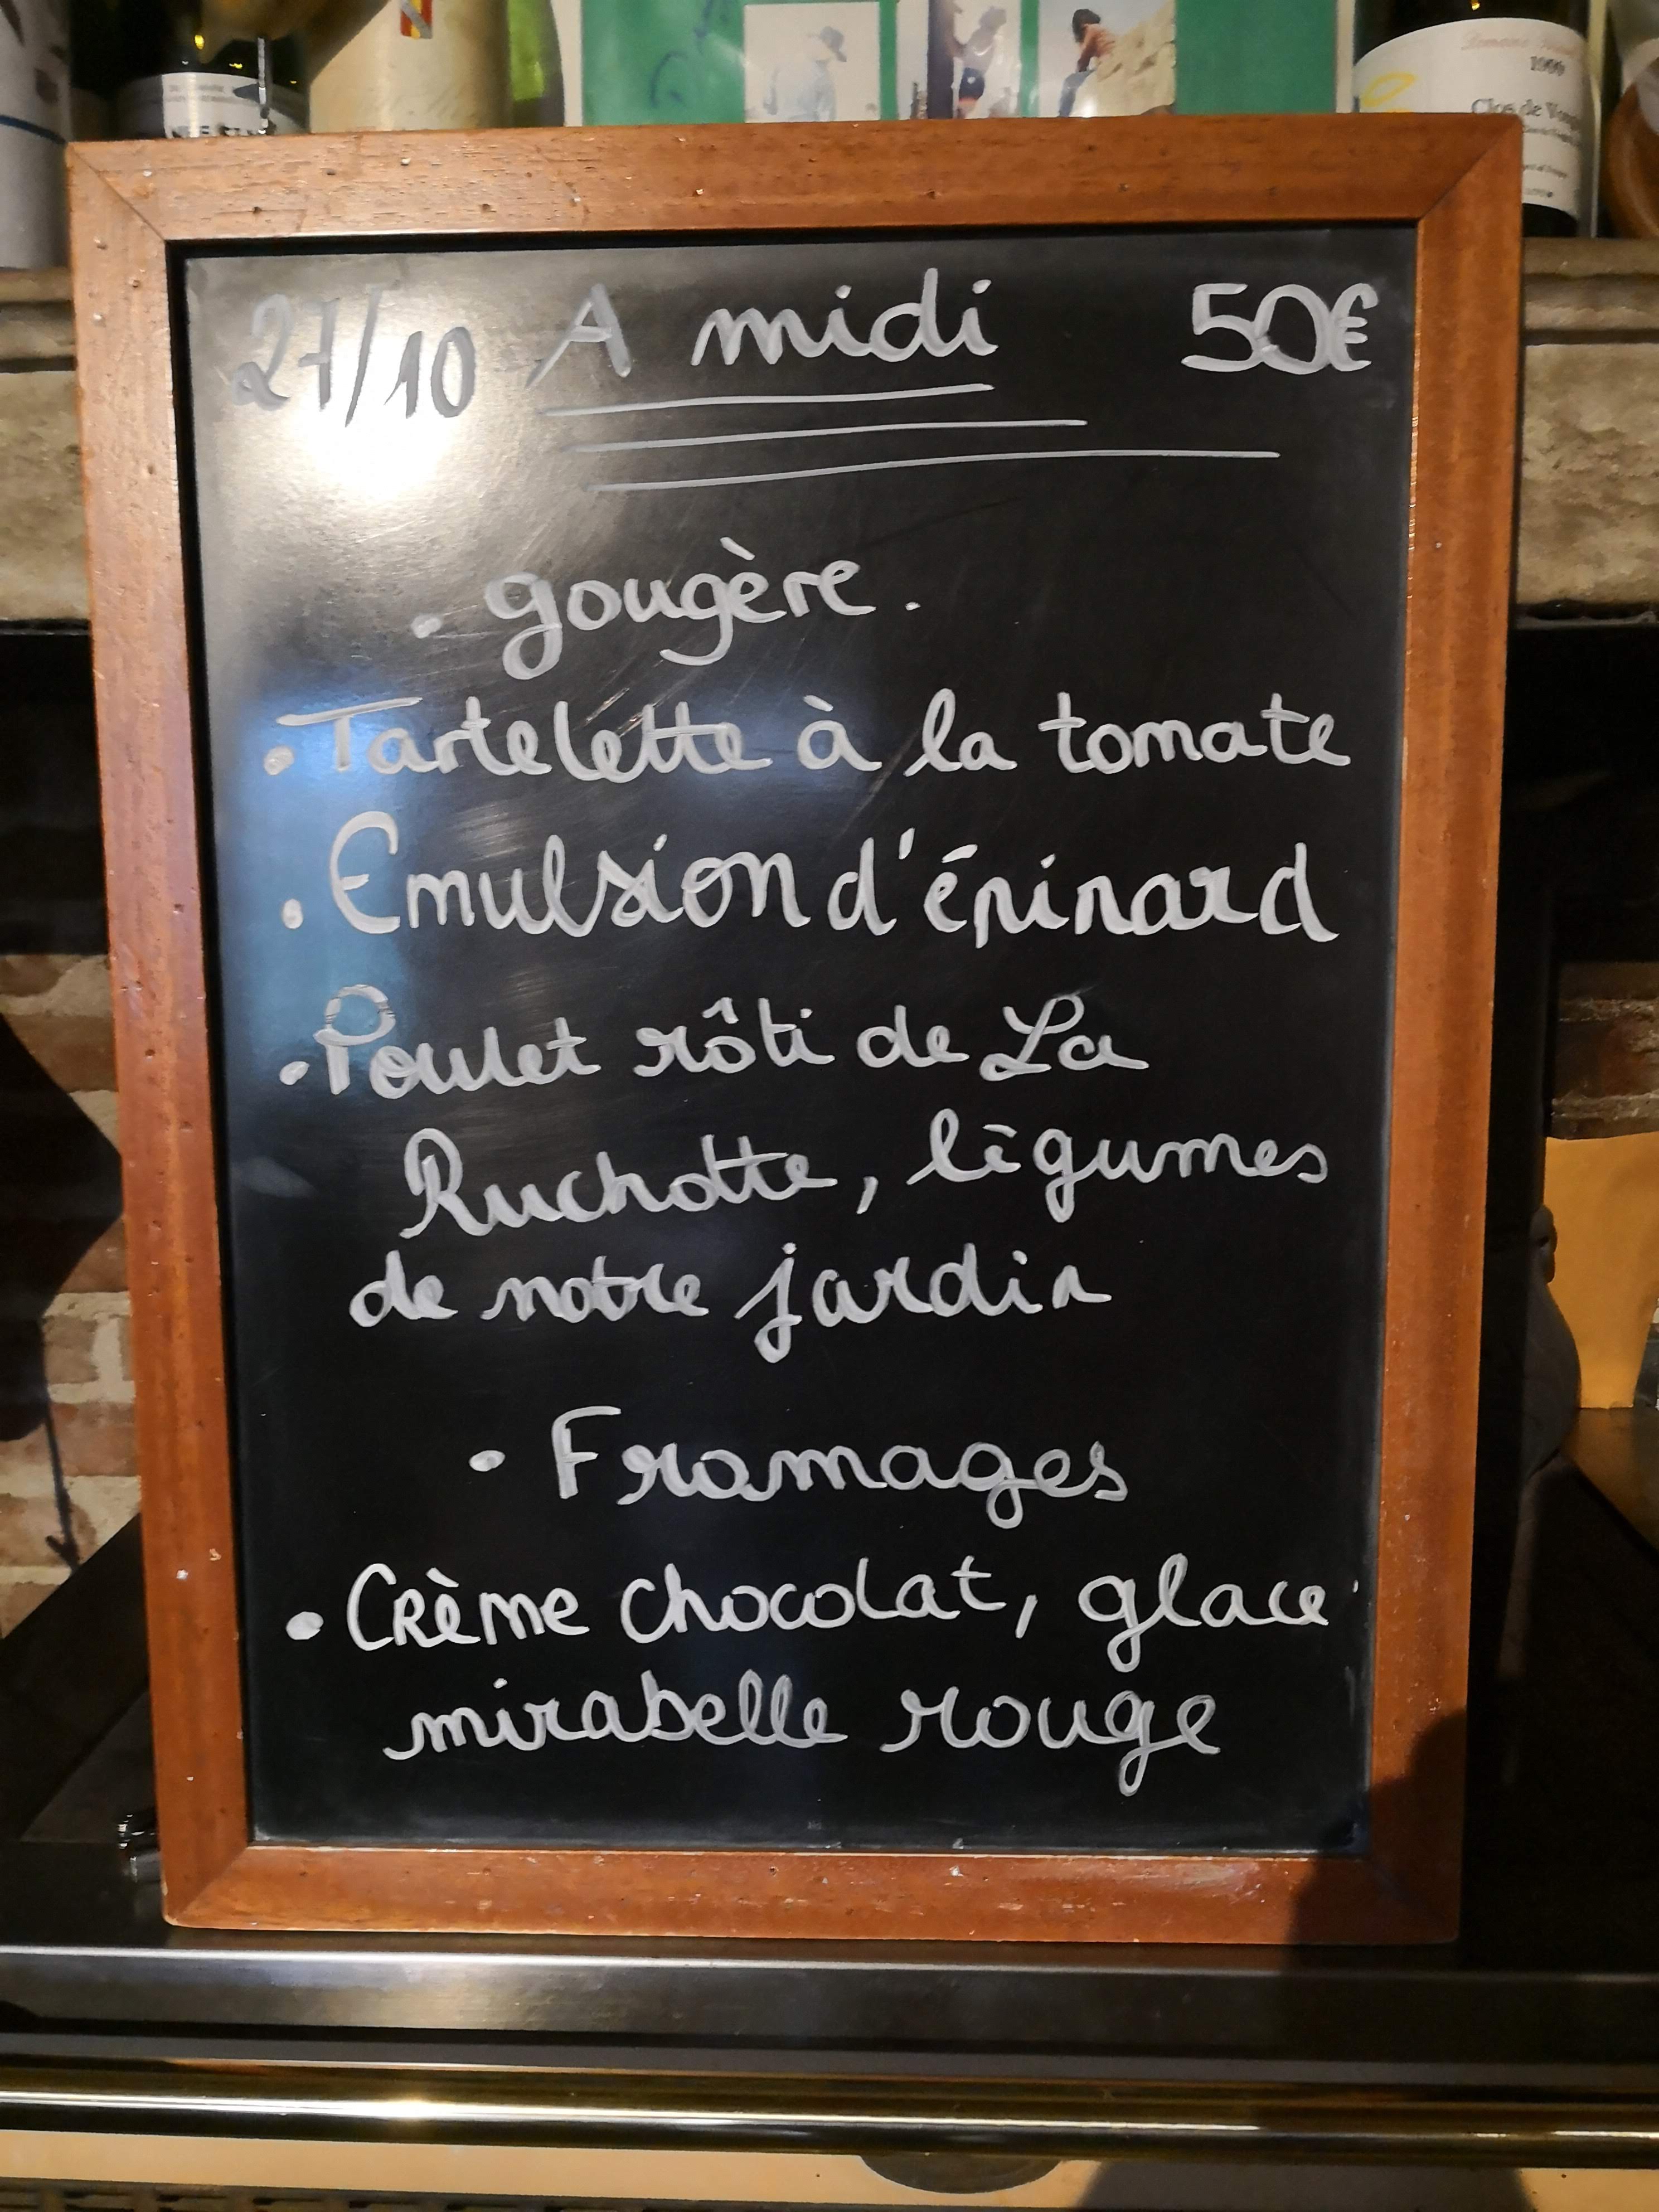 1999
Clos de
27/10 A midi 50€
. gougère .
. Tartelette à la tomate
. Emulsion d'épinard
. Poulet rôti de La
Ruchotte, légumes
de notre jardin
. Fromages
. Crème chocolat, glace
mirabelle rouge